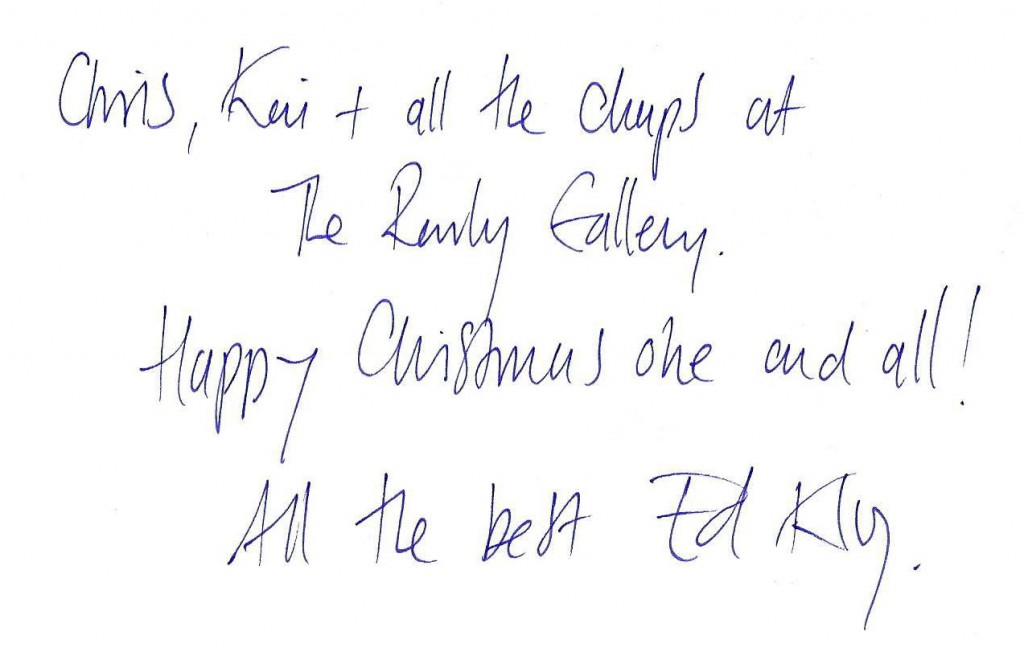 Chris, + all the chaps at
The Gallery.
Happy Christmas one and all!
All the best Ed